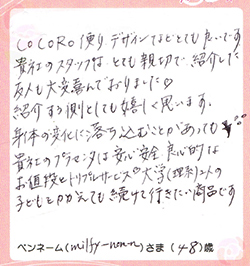 COCORO便り、デザインなどとても良いです
貴社のスタッフは、とても親切で紹介した
友人も大変喜んでおりました♡
紹介する側としても嬉しく思います。
身体の変化に落ち込むことがあっても
貴社のプラセンタは安心安全 良心的な
お値段とトリプルサービス 大学(理系)2人の
子どもとかかえても続けて行きたい商品です
ペンネーム(milfy-non-n)さま (48)歳